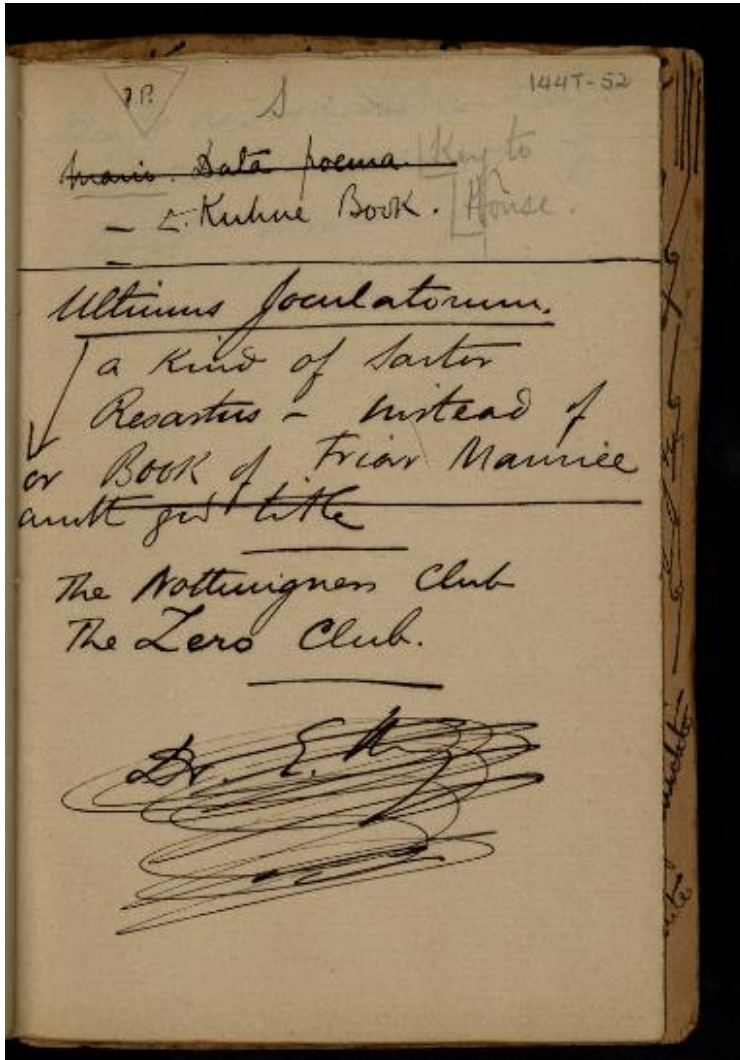 J.P.
S
144T-52
Data poema. Key to
- E. Kuhne Book. House.
-
Ultimus Joculatorum.
a kind of Sartor
Resartus - instead of
or Book of Friar Maurice
title
The Nothingness Club
The Zero Club.
Dr. E.